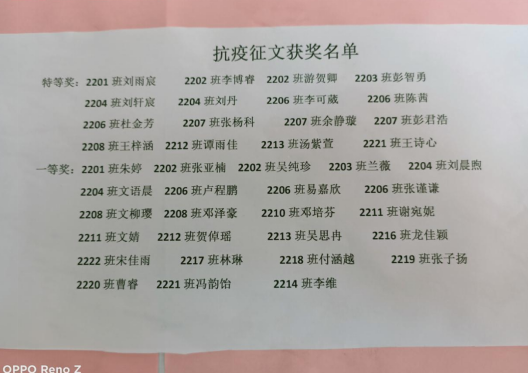 抗疫征文获奖名单
特等奖：2201 班刘雨宸 2202 班李博睿 2202 班游贺卿 2203 班彭智勇
2204 班刘轩宸 2204 班刘丹 2206 班李可葳 2206 班陈茜
2206 班杜金芳 2207 班张杨科 2207 班余静璇 2207 班彭君浩
2208 班王梓涵 2212 班谭雨佳 2213 班汤紫萱 2221 班王诗心
一等奖：2201 班朱婷 2202 班张亚楠 2202 班吴纯珍 2203 班兰薇 2204 班刘晨煦
2204 班文语晨 2206 班卢程鹏 2206 班易嘉欣 2206 班张谨谦
2208 班文柳璎 2208 班邓泽豪 2210 班邓培芬 2211 班谢宛妮
2211 班文婧 2212 班贺倬瑶 2213 班吴思冉 2216 班龙佳颖
2222 班宋佳雨 2217 班林琳 2218 班付涵越 2219 班张子扬
2220 班曹睿 2221 班冯韵饴 2214 班李维
OPPO Reno Z